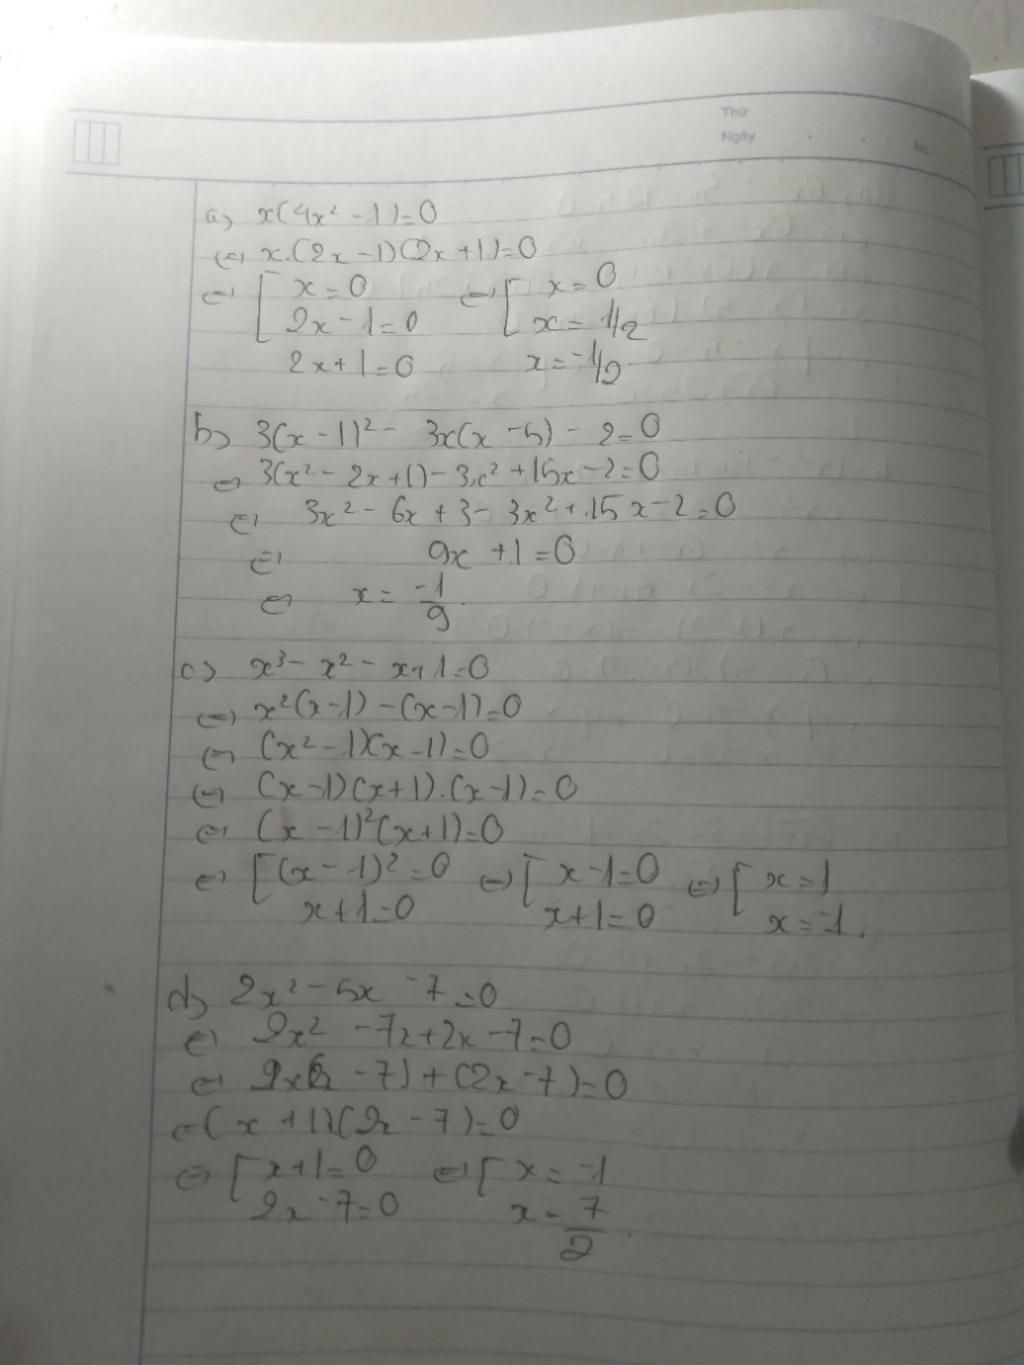 Thứ
Ngày
No.
a) x(4x² - 1) = 0
⇔ x.(2x - 1)(2x + 1) = 0
⇔ [ x = 0 ⇔ [ x = 0
2x - 1 = 0 x = 1/2
2x + 1 = 0 x = -1/2
b) 3(x - 1)² - 3x(x - 5) - 2 = 0
⇔ 3(x² - 2x + 1) - 3x² + 15x - 2 = 0
⇔ 3x² - 6x + 3 - 3x² + 15x - 2 = 0
⇔ 9x + 1 = 0
⇔ x = -1/9
c) x³ - x² - x + 1 = 0
⇔ x²(x - 1) - (x - 1) = 0
⇔ (x² - 1)(x - 1) = 0
⇔ (x - 1)(x + 1).(x - 1) = 0
⇔ (x - 1)²(x + 1) = 0
⇔ [ (x - 1)² = 0 ⇔ [ x - 1 = 0 ⇔ [ x = 1
x + 1 = 0 x + 1 = 0 x = -1.
d) 2x² - 5x - 7 = 0
⇔ 2x² - 7x + 2x - 7 = 0
⇔ - 7) + (2x - 7) = 0
⇔ (x + 1)(2x - 7) = 0
⇔ [ x + 1 = 0 ⇔ [ x = -1
2x - 7 = 0 x = 7/2